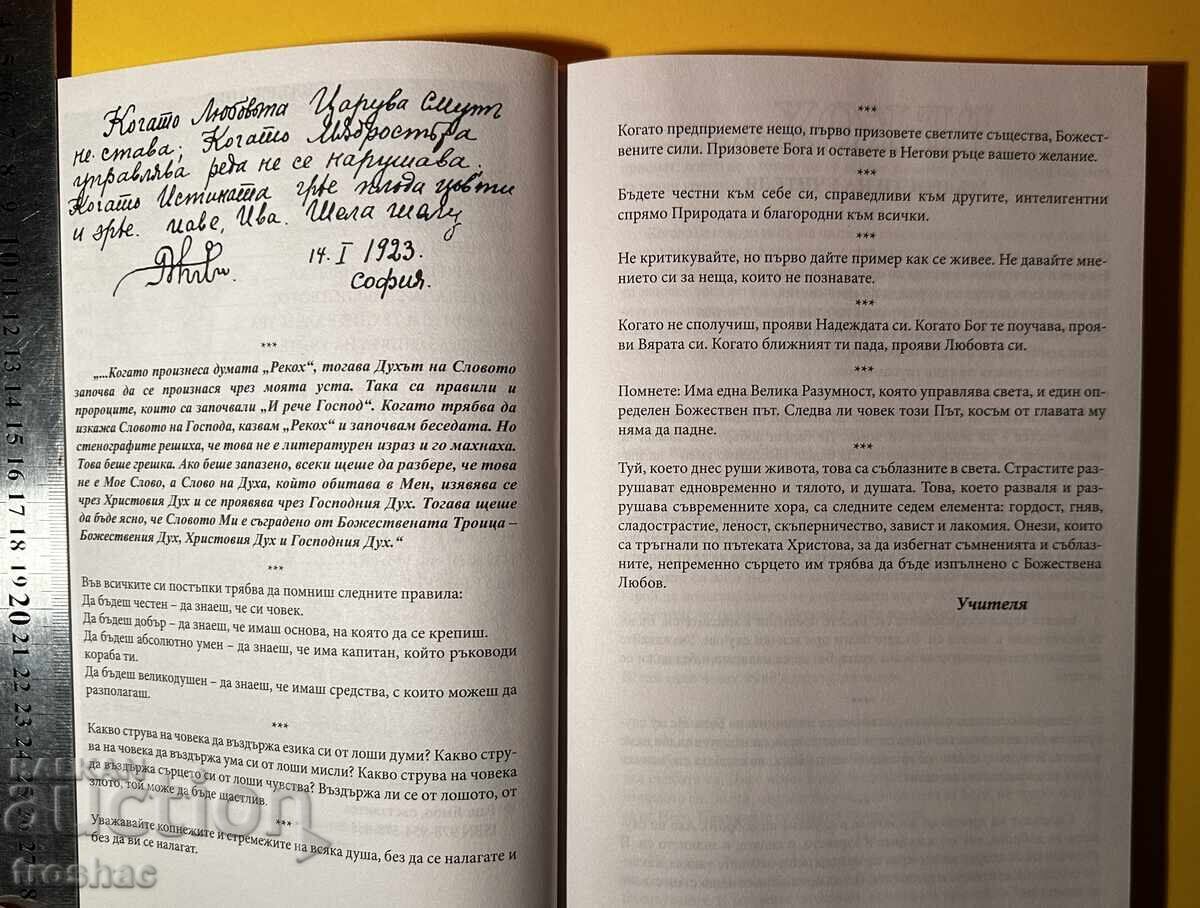 Когато Любовьта Царува Смутъ
не става; Когато Мѫдростьта
управлява реда не се нарушава;
Когато Истината грѣе плода цъвти
и зрѣе.
14. I 1923.
София.
***
„...Когато произнеса думата „Рекох“, тогава Духът на Словото
започва да се произнася чрез моята уста. Така са правили и
пророците, които са започвали „И рече Господ“. Когато трябва да
изкажа Словото на Господа, казвам „Рекох“ и започвам беседата. Но
стенографите решиха, че това не е литературен израз и го махнаха.
Това беше грешка. Ако беше запазено, всеки щеше да разбере, че това
не е Мое Слово, а Слово на Духа, който обитава в Мен, изявява се
чрез Христовия Дух и се проявява чрез Господния Дух. Тогава щеше
да бъде ясно, че Словото Ми е съградено от Божествената Троица –
Божествения Дух, Христовия Дух и Господния Дух.“
***
Във всичките си постъпки трябва да помниш следните правила:
Да бъдеш честен – да знаеш, че си човек.
Да бъдеш добър – да знаеш, че имаш основа, на която да се крепиш.
Да бъдеш абсолютно умен – да знаеш, че има капитан, който ръководи
кораба ти.
Да бъдеш великодушен – да знаеш, че имаш средства, с които можеш да
разполагаш.
***
Какво струва на човека да въздържа езика си от лоши думи? Какво стру-
ва на човека да въздържа ума си от лоши мисли? Какво струва на човека
да въздържа сърцето си от лоши чувства? Въздържа ли се от лошото, от
злото, той може да бъде щастлив.
***
Уважавайте копнежите и стремежите на всяка душа, без да се налагате и
без да ви се налагат.
***
Когато предприемете нещо, първо призовете светлите същества, Божест-
вените сили. Призовете Бога и оставете в Негови ръце вашето желание.
***
Бъдете честни към себе си, справедливи към другите, интелигентни
спрямо Природата и благородни към всички.
***
Не критикувайте, но първо дайте пример как се живее. Не давайте мне-
нието си за неща, които не познавате.
***
Когато не сполучиш, прояви Надеждата си. Когато Бог те поучава, проя-
ви Вярата си. Когато ближният ти пада, прояви Любовта си.
***
Помнете: Има една Велика Разумност, която управлява света, и един оп-
ределен Божествен път. Следва ли човек този Път, косъм от главата му
няма да падне.
***
Туй, което днес руши живота, това са съблазните в света. Страстите раз-
рушават едновременно и тялото, и душата. Това, което разваля и раз-
рушава съвременните хора, са следните седем елемента: гордост, гняв,
сладострастие, леност, скъперничество, завист и лакомия. Онези, които
са тръгнали по пътеката Христова, за да избегнат съмненията и съблаз-
ните, непременно сърцето им трябва да бъде изпълнено с Божествена
Любов.
Учителя
4 5 6 7 8 9 10 11 12 13 14 15 16 17 18 19 20 21 22 23 24 25 26 27 28
BALKAN
auction
froshac